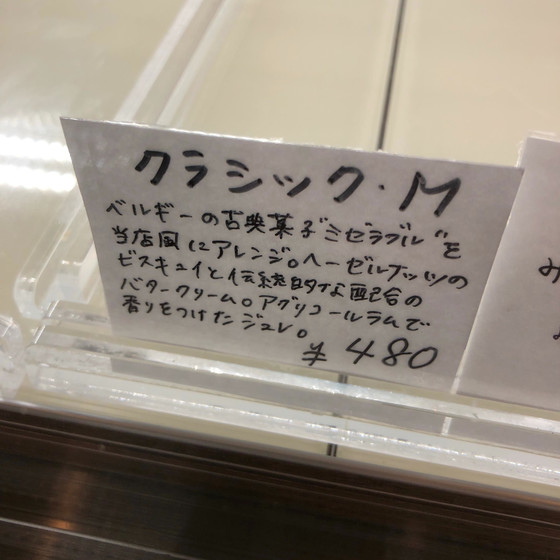 クラシック・M
ベルギーの古典菓子"ミゼラブル"を
当店風にアレンジ。ヘーゼルナッツの
ビスキュイと伝統的な配合の
バタークリーム。アグリコールラムで
香りをつけたジュレ。
¥480
み